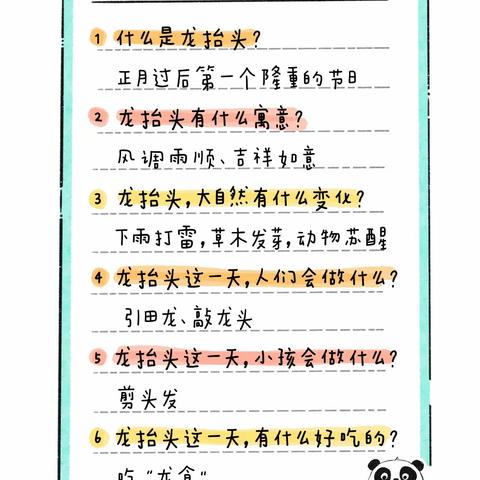 ① 什么是龙抬头?
正月过后第一个隆重的节日
② 龙抬头有什么寓意?
风调雨顺、吉祥如意
③ 龙抬头,大自然有什么变化?
下雨打雷,草木发芽,动物苏醒
④ 龙抬头这一天,人们会做什么?
引田龙、敲龙头
⑤ 龙抬头这一天,小孩会做什么?
剪头发
⑥ 龙抬头这一天,有什么好吃的?
吃“龙食”